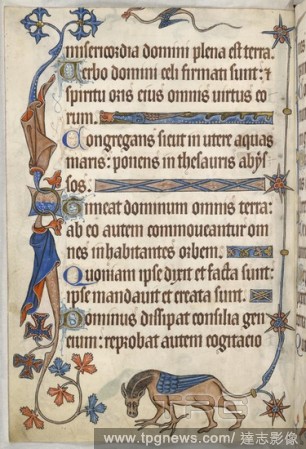 misericordia domini plena est terra.
Verbo domini celi firmati sunt: &
spiritu oris eius omnis virtus eo
rum.
Congregans sicut in utere aquas
maris: ponens in thesauris abys
sos.
Timeat dominum omnis terra:
ab eo autem commoueantur om
nes inhabitantes orbem.
Quoniam ipse dixit et facta sunt:
ipse mandauit et creata sunt.
Dominus dissipat consilia gen
cium: reprobat autem cogitacio
TPG
www.tpgnews.com / 達志影像